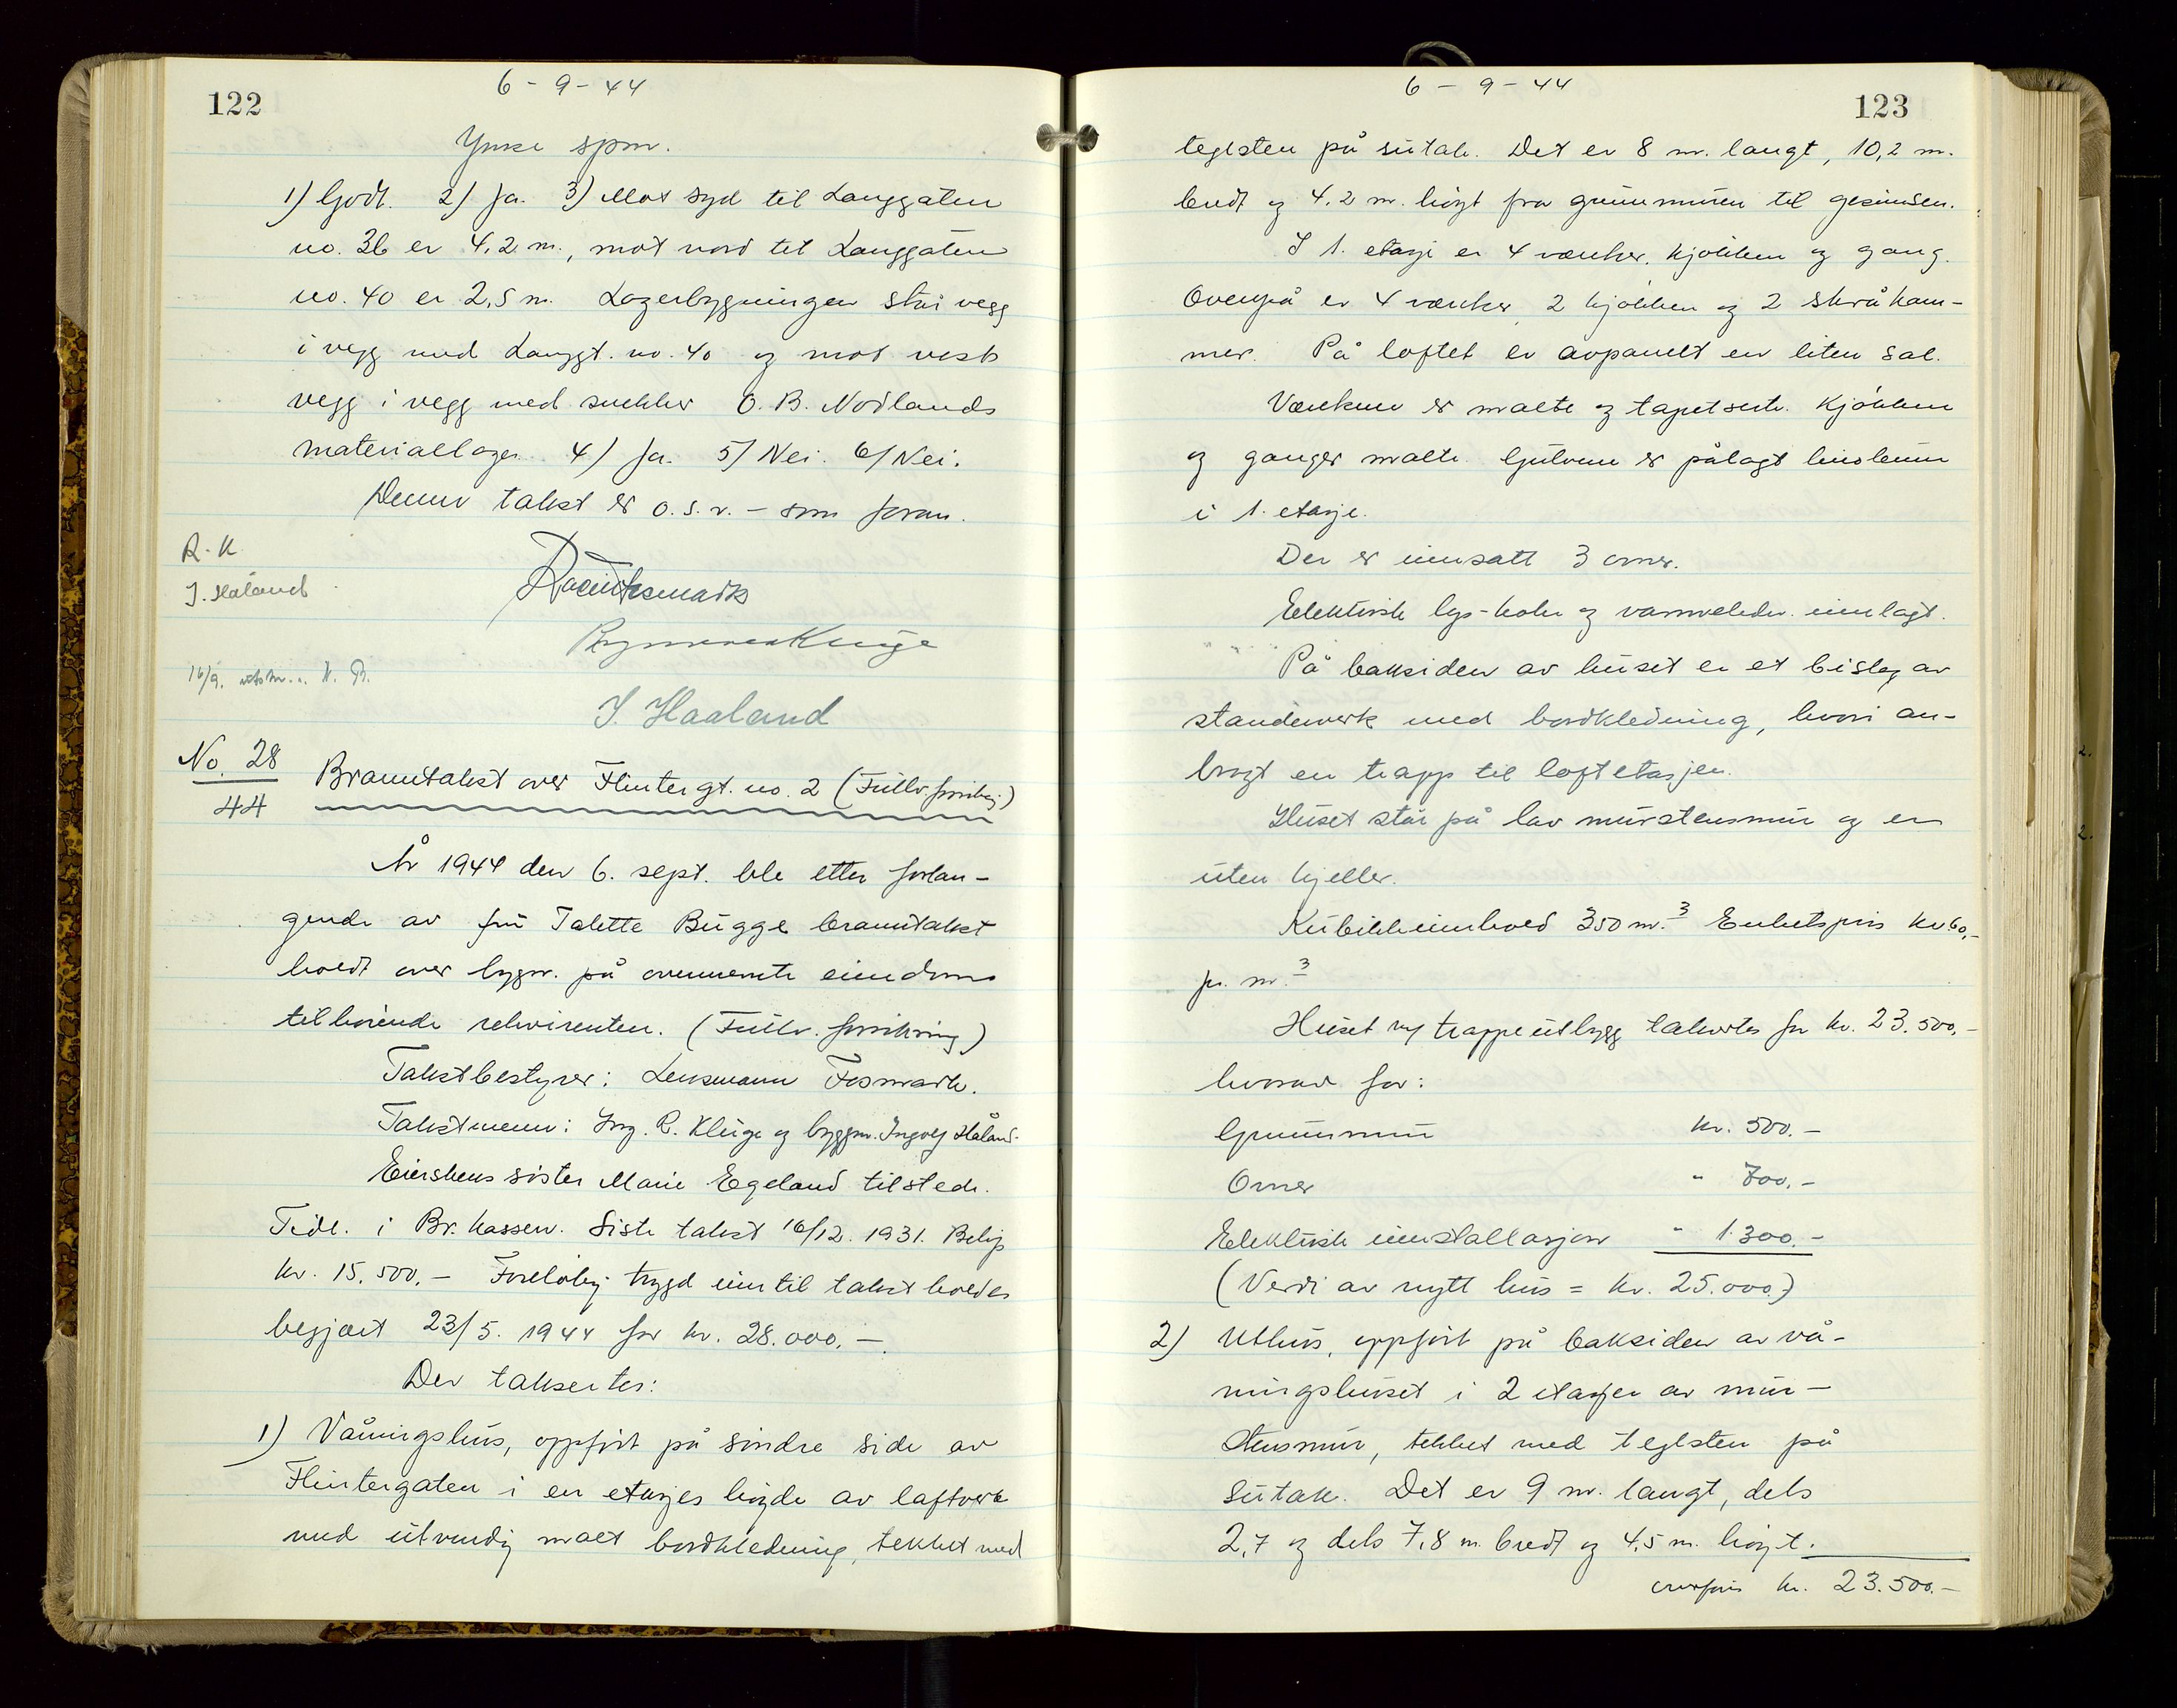 122
6 - 9 - 44
Ymse spm.
1) Godt. 2) Ja. 3) Mot syd til Langgaten
no. 36 er 4,2 m., mot nord til Langgaten
no. 40 er 2,5 m. Lagerbygningen står vegg
i vegg med Langgt. no. 40 og mot vest
vegg i vegg med snekker O. B. Nodlands
materiallager. 4) Ja. 5) Nei. 6) Nei.
Denne takst er o. s. v. - som foran.
R. K
J. Håland
Kluge
16/9.
J. Haaland
No. 28
44
Branntakst over Flintergt. no. 2 (Fullv. forsikr.)
År 1944 den 6. sept. ble etter forlan-
gende av fru Talette Bugge branntakst
holdt over bygn. på ovennevnte eiendom
tilhørende rekvirenten. (Fullv. forsikring)
Takstbestyrer: Lensmann Fosmark.
Takstmenn: Ing. R. Kluge og byggm. Ingolf Håland.
Eierskens søster Marie Egeland tilstede.
Tidl. i Br. kassen. Siste takst 16/12. 1931. Beløp
kr. 15.500,- Foreløbig trygd inntil takst holdes
begjært 23/5. 1944 for kr. 28.000,-.
Der taksertes:
1) Våningshus, oppført på søndre side av
Flintergaten i en etasjes høyde av laftverk
med utvendig malt bordkledning, tekket med
6 - 9 - 44
123
teglsten på sutak. Det er 8 m. langt, 10,2 m.
bredt og 4,2 m. høyt fra grunnmuren til gesimsen.
I 1. etasje er 4 værelser, kjøkken og gang.
Ovenpå er 4 værelser, 2 kjøkken og 2 skråkam-
mer. På loftet er avpanelt en liten sal.
Værelsene er malte og tapetserte. Kjøkken
og ganger malte. Gulvene er pålagt linoleum
i 1. etasje.
Der er innsatt 3 ovner.
Elektrisk lys-koke og varmeledn. innlagt.
På baksiden av huset er et bislag av
standerverk med bordkledning, hvori an-
bragt en trapp til loftetasjen.
Huset står på lav murstensmur og er
uten kjeller.
Kubikkinnhold 350 m.³ Enhetspris kr. 60,-
pr. m.³
Huset m/ trappeutbygg takseres for kr. 23.500,-
hvorav for:
Grunnmur kr. 500.-
Ovner " 700.-
Elektrisk innstallasjon " 1.300.-
(Verdi av nytt hus = kr. 25.000.)
2) Uthus, oppført på baksiden av vå-
ningshuset i 2 etasjer av mur-
stensmur, tekket med teglsten på
sutak. Det er 9 m. langt, dels
2,7 og dels 7,8 m. bredt og 4,5 m. høyt.
overføres kr. 23.500.-